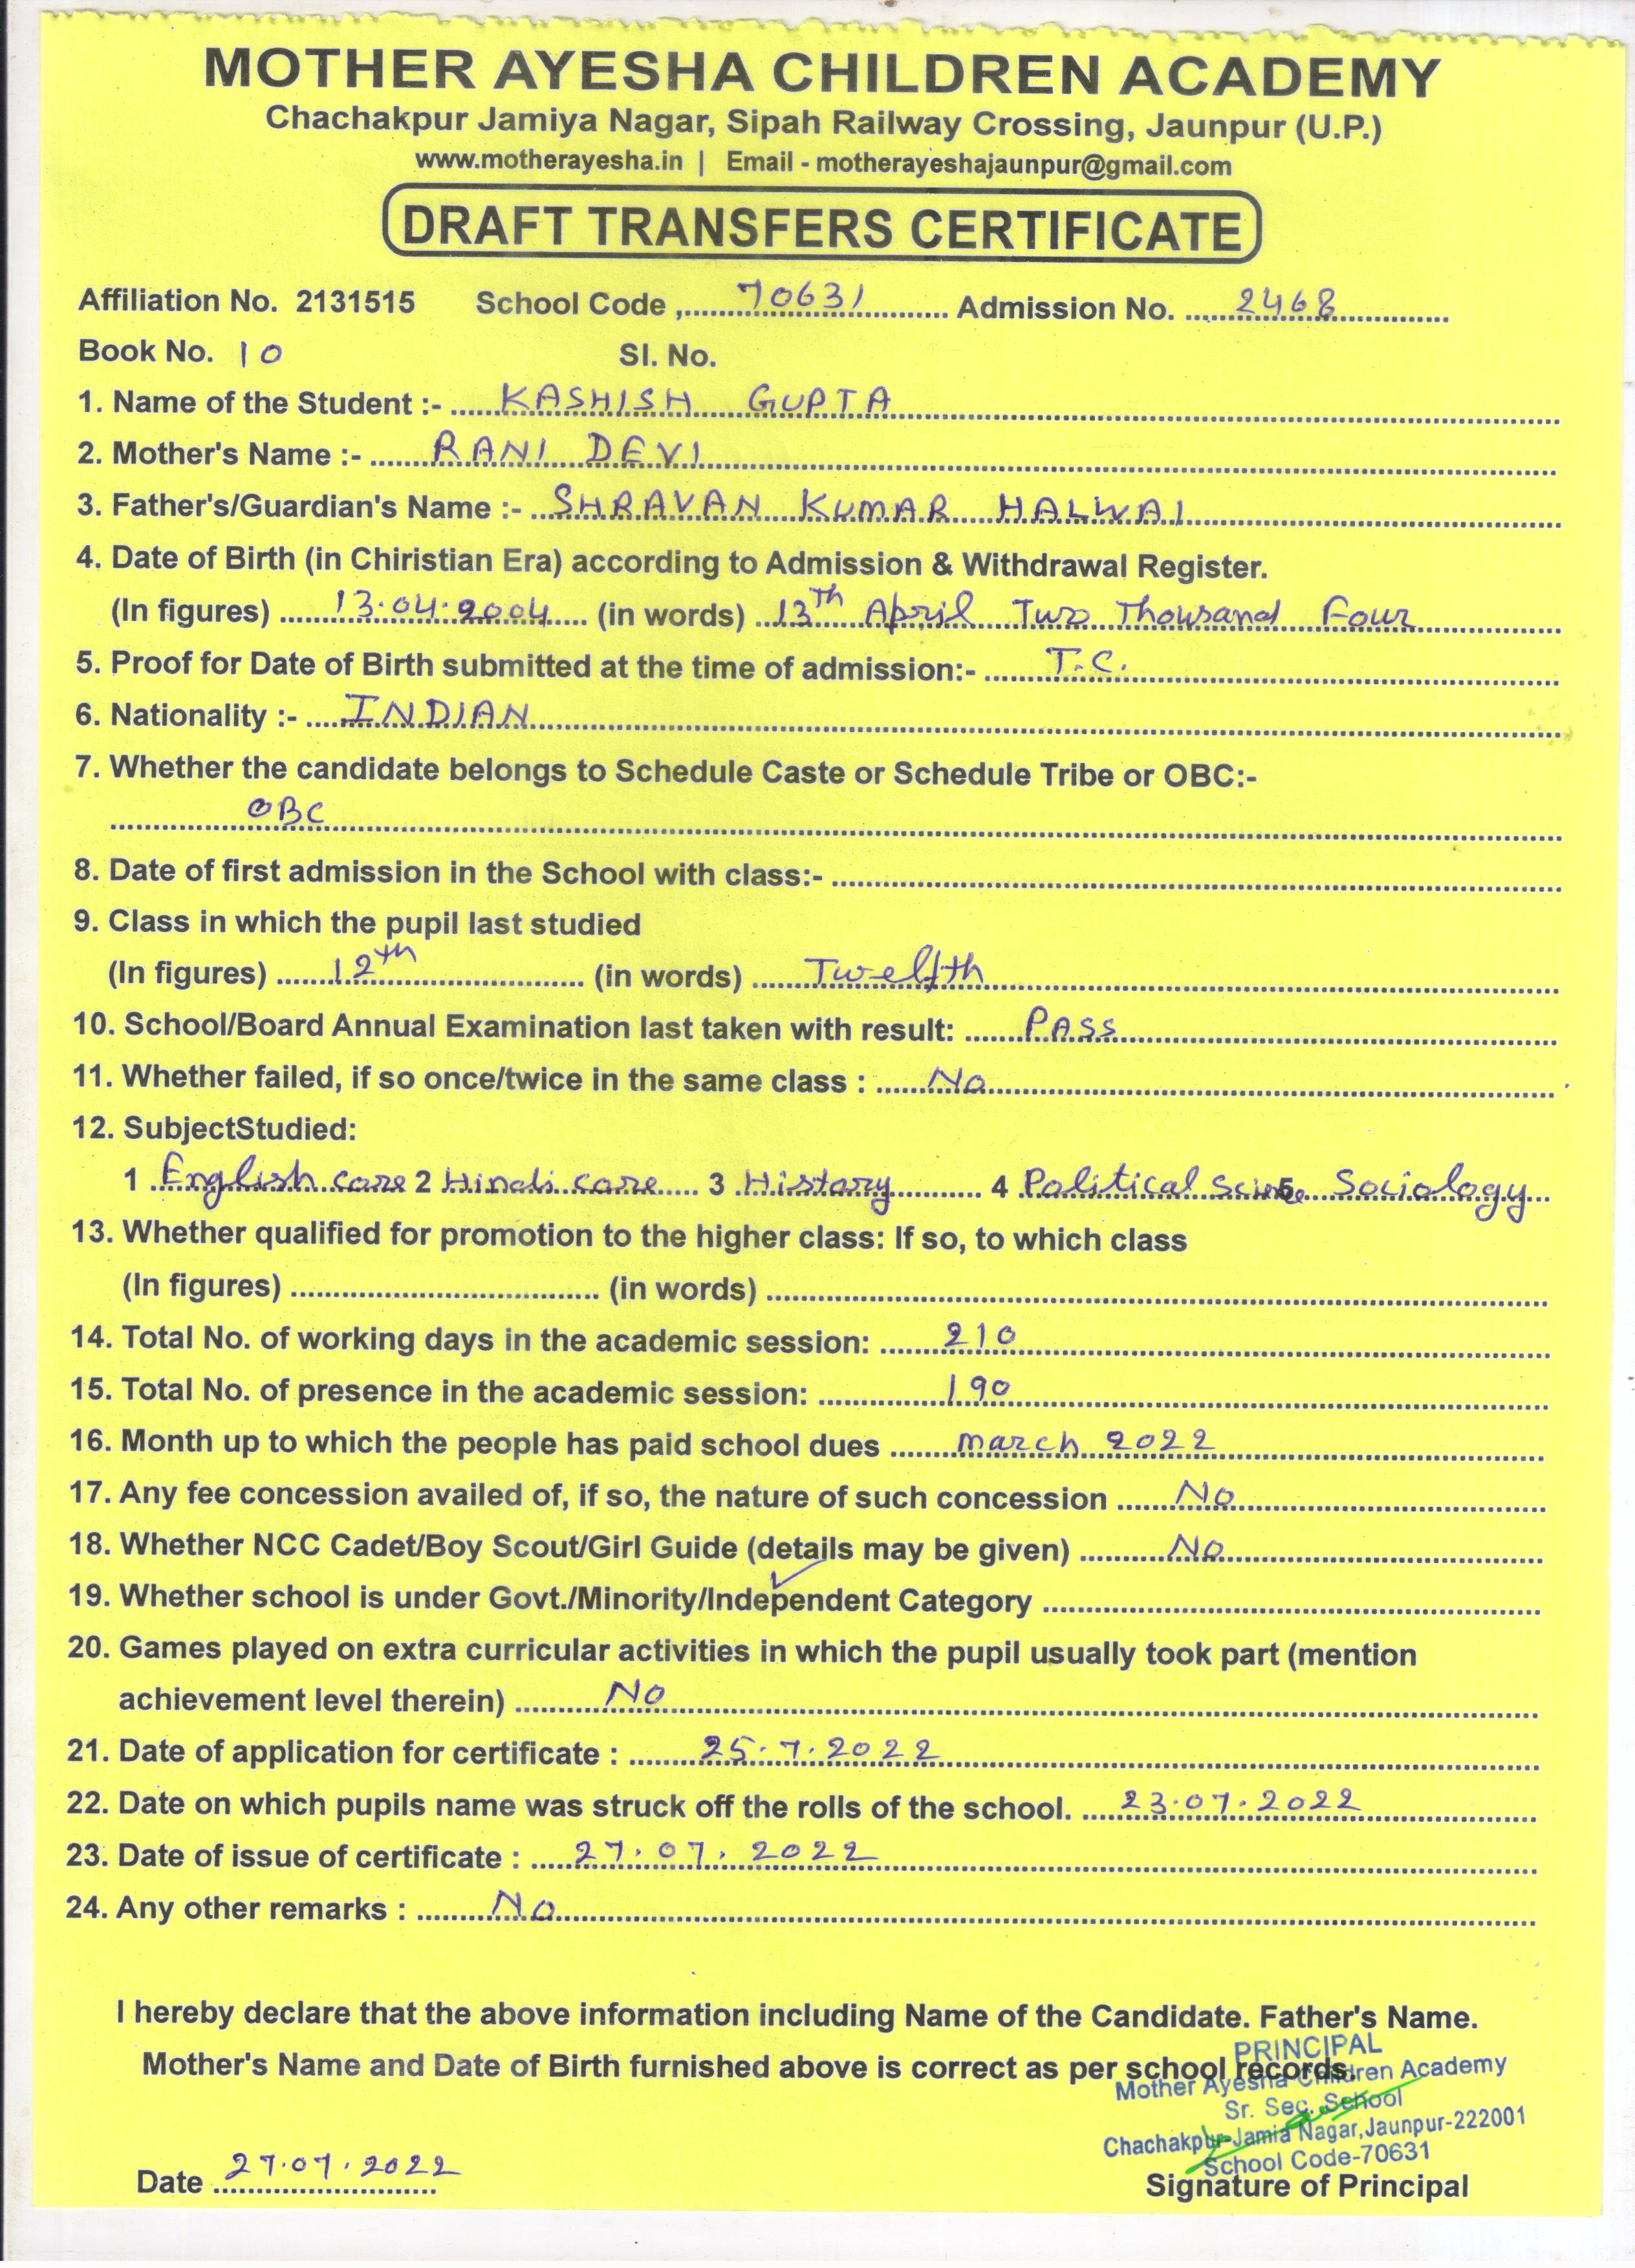 MOTHER AYESHA CHILDREN ACADEMY
Chachakpur Jamiya Nagar, Sipah Railway Crossing, Jaunpur (U.P.)
www.motherayesha.in | Email - motherayeshajaunpur@gmail.com
DRAFT TRANSFERS CERTIFICATE
Affiliation No. 2131515 School Code ,........70631........ Admission No. ........2468........
Book No. 10 Sl. No.
1. Name of the Student :- ........KASHISH GUPTA........
2. Mother's Name :- ........RANI DEVI........
3. Father's/Guardian's Name :- ........SHRAVAN KUMAR HALWAI........
4. Date of Birth (in Chiristian Era) according to Admission & Withdrawal Register.
(In figures) ........13.04.2004........ (in words) ........13th April Two Thousand Four........
5. Proof for Date of Birth submitted at the time of admission:- ........T.C.........
6. Nationality :- ........INDIAN........
7. Whether the candidate belongs to Schedule Caste or Schedule Tribe or OBC:-
........OBC........
8. Date of first admission in the School with class:- ........
9. Class in which the pupil last studied
(In figures) ........12th........ (in words) ........Twelfth........
10. School/Board Annual Examination last taken with result: ........PASS........
11. Whether failed, if so once/twice in the same class : ........No........
12. SubjectStudied:
1 English core 2 Hindi core 3 History 4 Political Science 5 Sociology
13. Whether qualified for promotion to the higher class: If so, to which class
(In figures) ........ (in words) ........
14. Total No. of working days in the academic session: ........210........
15. Total No. of presence in the academic session: ........190........
16. Month up to which the people has paid school dues ........march 2022........
17. Any fee concession availed of, if so, the nature of such concession ........No........
18. Whether NCC Cadet/Boy Scout/Girl Guide (details may be given) ........No........
19. Whether school is under Govt./Minority/Independent Category ........
20. Games played on extra curricular activities in which the pupil usually took part (mention
achievement level therein) ........No........
21. Date of application for certificate : ........25.7.2022........
22. Date on which pupils name was struck off the rolls of the school. ........23.07.2022........
23. Date of issue of certificate : ........27.07.2022........
24. Any other remarks : ........No........
I hereby declare that the above information including Name of the Candidate. Father's Name.
Mother's Name and Date of Birth furnished above is correct as per school records.
PRINCIPAL
Mother Ayesha Children Academy
Sr. Sec. School
Chachakpur-Jamia Nagar, Jaunpur-222001
School Code-70631
Date ........27.07.2022........ Signature of Principal